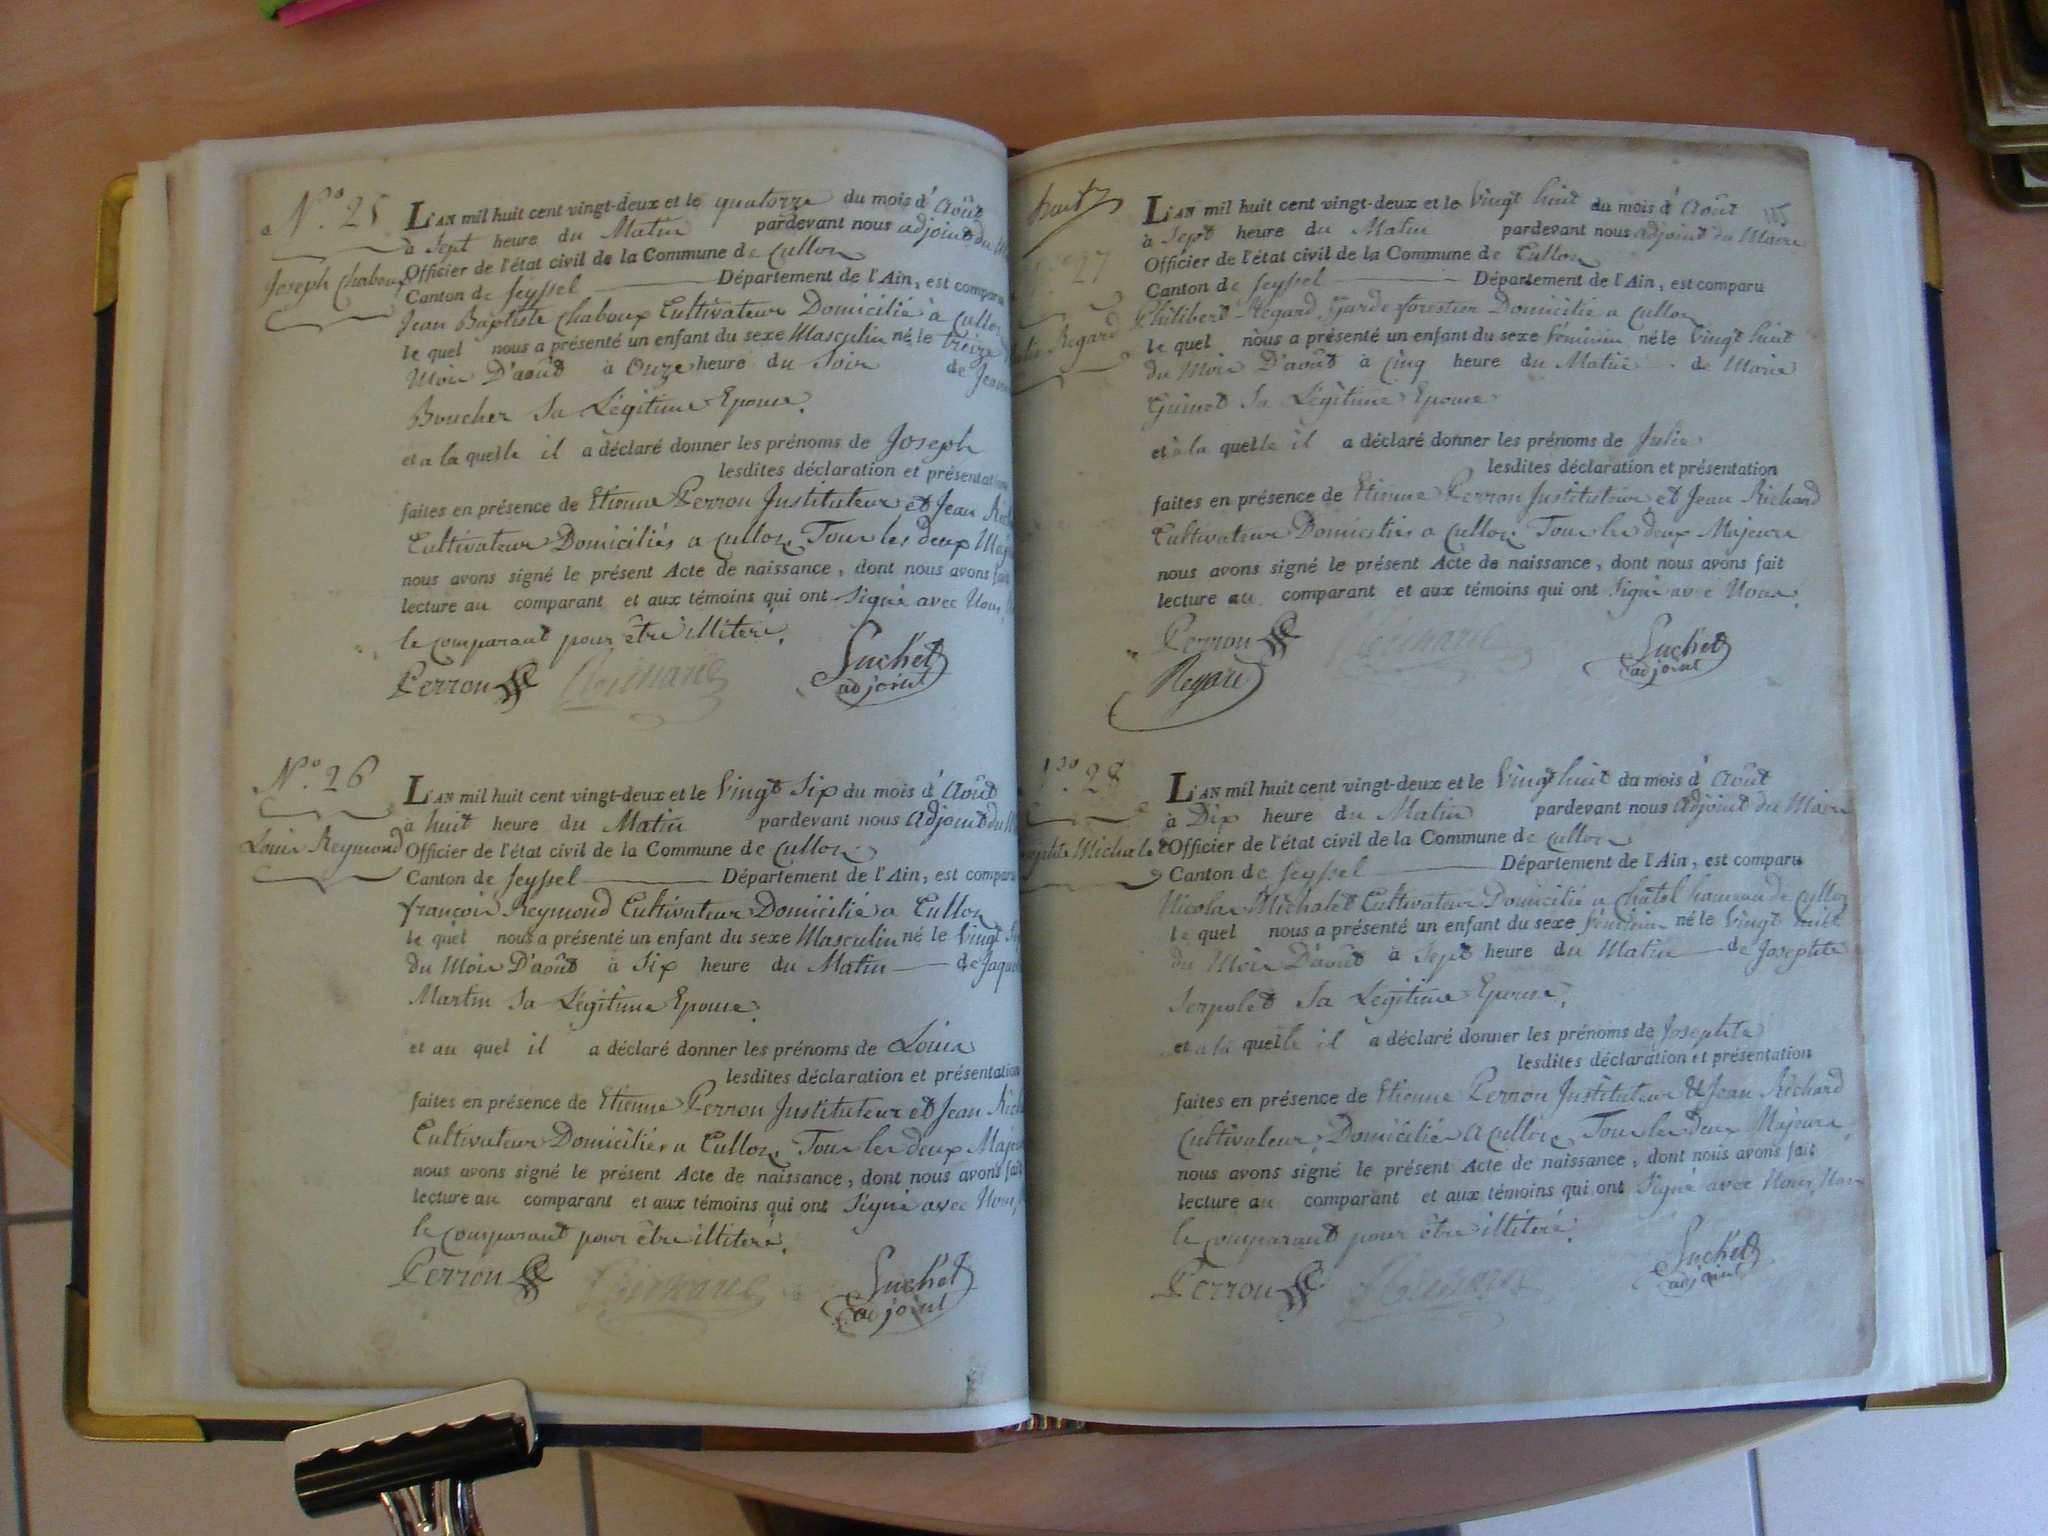 N.° 25
Joseph Chaboux
L'AN mil huit cent vingt-deux et le quatorze du mois d' Août
à Sept heure du Matin pardevant nous adjoint du
Officier de l'état civil de la Commune de Culloz
Canton de Seyssel Département de l'Ain, est comparu
Jean Baptiste Chaboux Cultivateur Domicilié à Culloz
le quel nous a présenté un enfant du sexe Masculin né le treize
Mois D'août à Onze heure du Soir de
Boucher Sa Légitime Epouse.
et a la quelle il a déclaré donner les prénoms de Joseph
lesdites déclaration et présentation
faites en présence de Etienne Perron Instituteur et Jean
Cultivateur Domiciliés a Culloz, Tous les deux
nous avons signé le présent Acte de naissance, dont nous avons fait
lecture au comparant et aux témoins qui ont Signé avec Nous,
le comparant pour être illiteré.
Perron
Suchet
adjoint
N.° 26
Louis Reymond
L'AN mil huit cent vingt-deux et le Vingt Six du mois d' Août
à huit heure du Matin pardevant nous Adjoint du
Officier de l'état civil de la Commune de Culloz
Canton de Seyssel Département de l'Ain, est comparu
françois Reymond Cultivateur Domicilié a Culloz
le quel nous a présenté un enfant du sexe Masculin né le Vingt
du Mois D'août à Six heure du Matin de
Martin Sa Légitime Epouse.
et au quel il a déclaré donner les prénoms de Louis
lesdites déclaration et présentation
faites en présence de Etienne Perron Instituteur et Jean
Cultivateur Domiciliés a Culloz, Tous les deux
nous avons signé le présent Acte de naissance, dont nous avons fait
lecture au comparant et aux témoins qui ont Signé avec Nous,
le comparant pour être illiteré.
Perron
Suchet
adjoint
huit
27
Regard
L'AN mil huit cent vingt-deux et le Vingt huit du mois d' Août
à Sept heure du Matin pardevant nous adjoint du Maire
Officier de l'état civil de la Commune de Culloz
Canton de Seyssel Département de l'Ain, est comparu
Philibert Regard, Garde forestier Domicilié a Culloz
le quel nous a présenté un enfant du sexe féminin né le Vingt huit
du Mois D'août à Cinq heure du Matin de Marie
Guinet Sa Légitime Epouse
et à la quelle il a déclaré donner les prénoms de Julie
lesdites déclaration et présentation
faites en présence de Etienne Perron Instituteur et Jean Richard
Cultivateur Domiciliés a Culloz. Tous les deux Majeurs
nous avons signé le présent Acte de naissance, dont nous avons fait
lecture au comparant et aux témoins qui ont Signé avec Nous.
Perron
Suchet
adjoint
Regard
28
Michalet
L'AN mil huit cent vingt-deux et le Vingt huit du mois d' Août
à Dix heure du Matin pardevant nous adjoint du Maire
Officier de l'état civil de la Commune de Culloz
Canton de Seyssel Département de l'Ain, est comparu
Nicolas Michalet Cultivateur Domicilié a Châtel hameau de Culloz
le quel nous a présenté un enfant du sexe féminin né le Vingt huit
du Mois D'août à Sept heure du Matin de Josephte
Serpolet Sa Légitime Epouse.
et a la quelle il a déclaré donner les prénoms de Josephte
lesdites déclaration et présentation
faites en présence de Etienne Perron Instituteur & Jean Richard
Cultivateur, Domiciliés a Culloz, Tous les deux Majeurs,
nous avons signé le présent Acte de naissance, dont nous avons fait
lecture au comparant et aux témoins qui ont Signé avec Nous, Non
le comparant pour être illiteré.
Perron
Suchet
adjoint